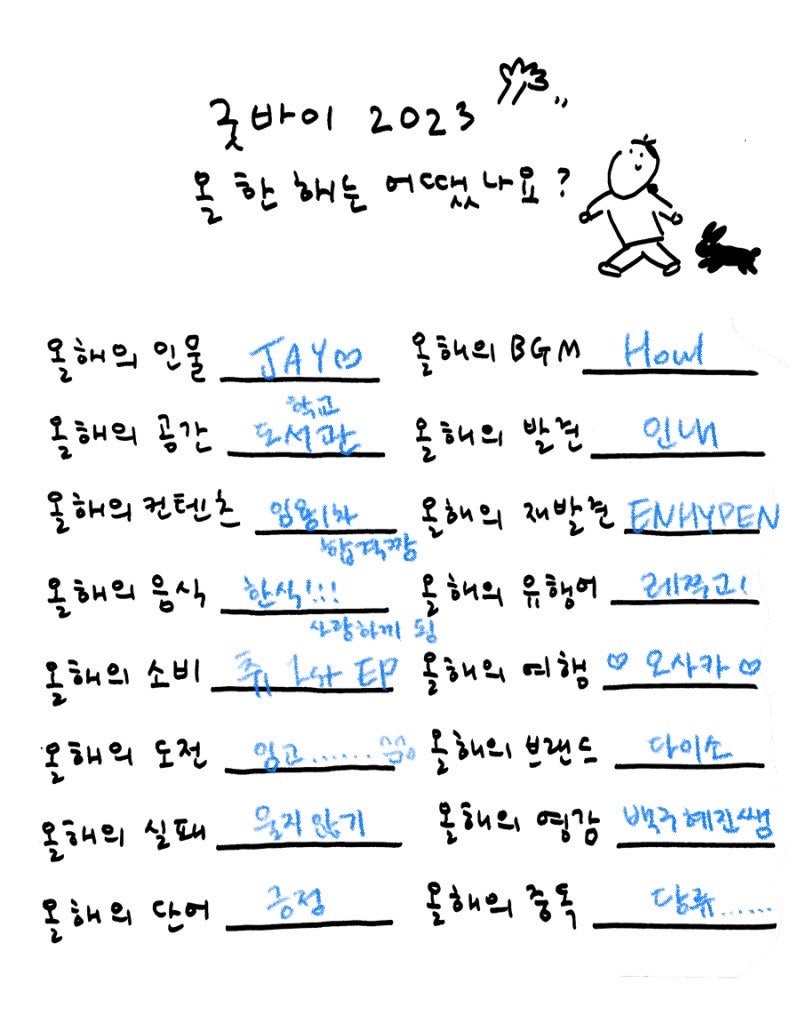 굿바이 2023
올 한 해는 어땠나요?
올해의 인물 JAY♡
올해의 BGM Howl
올해의 공간 학교 도서관
올해의 발견 인내
올해의 컨텐츠 임용1차 합격짱
올해의 재발견 ENHYPEN
올해의 음식 한식!!! 사랑하게 됨
올해의 유행어 레쭈고!
올해의 소비 쥬 1st EP
올해의 여행 ♡ 오사카 ♡
올해의 도전 임고......
올해의 브랜드 다이소
올해의 실패 울지 않기
올해의 영감 백주혜진쌤
올해의 단어 긍정
올해의 중독 당류......